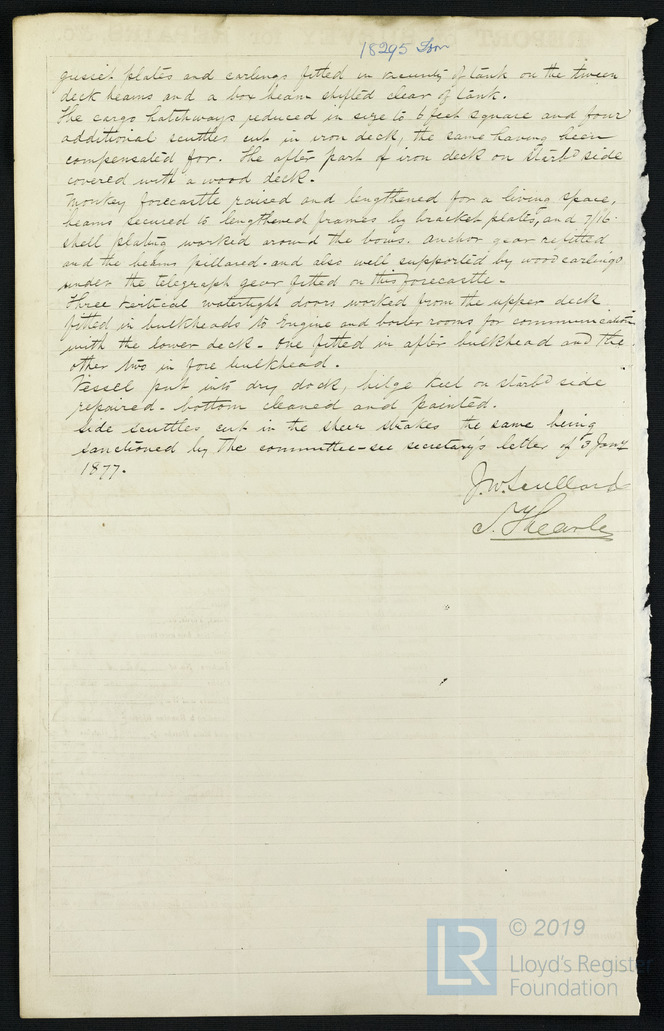 18295 Iron
gusset plates and carlings fitted in vicinity of tank on the tween
deck beams and a box beam shifted clear of tank.
The cargo hatchways reduced in size to 6 feet square and four
additional scuttles cut in iron deck, the same having been
compensated for. The after part of iron deck on Starbd side
covered with a wood deck.
Monkey forecastle raised and lengthened for a living space,
beams secured to lengthened frames by bracket plates, and 7/16
shell plating worked around the bows. Anchor gear refitted
and the beams pillared and also well supported by wood carlings
under the telegraph gear fitted on this forecastle.
Three vertical watertight doors worked from the upper deck
fitted in bulkheads to Engine and boiler rooms for communication
with the lower deck - one fitted in after bulkhead and the
other two in fore bulkhead.
Vessel put into dry dock, bilge keel on starbd side
repaired - bottom cleaned and painted.
Side scuttles cut in the sheer strakes the same being
sanctioned by the committee - see secretary's letter of 3 Jany
1877.
J.W. Scullard
S. J. P. Thearle
© 2019
LR
Lloyd's Register
Foundation